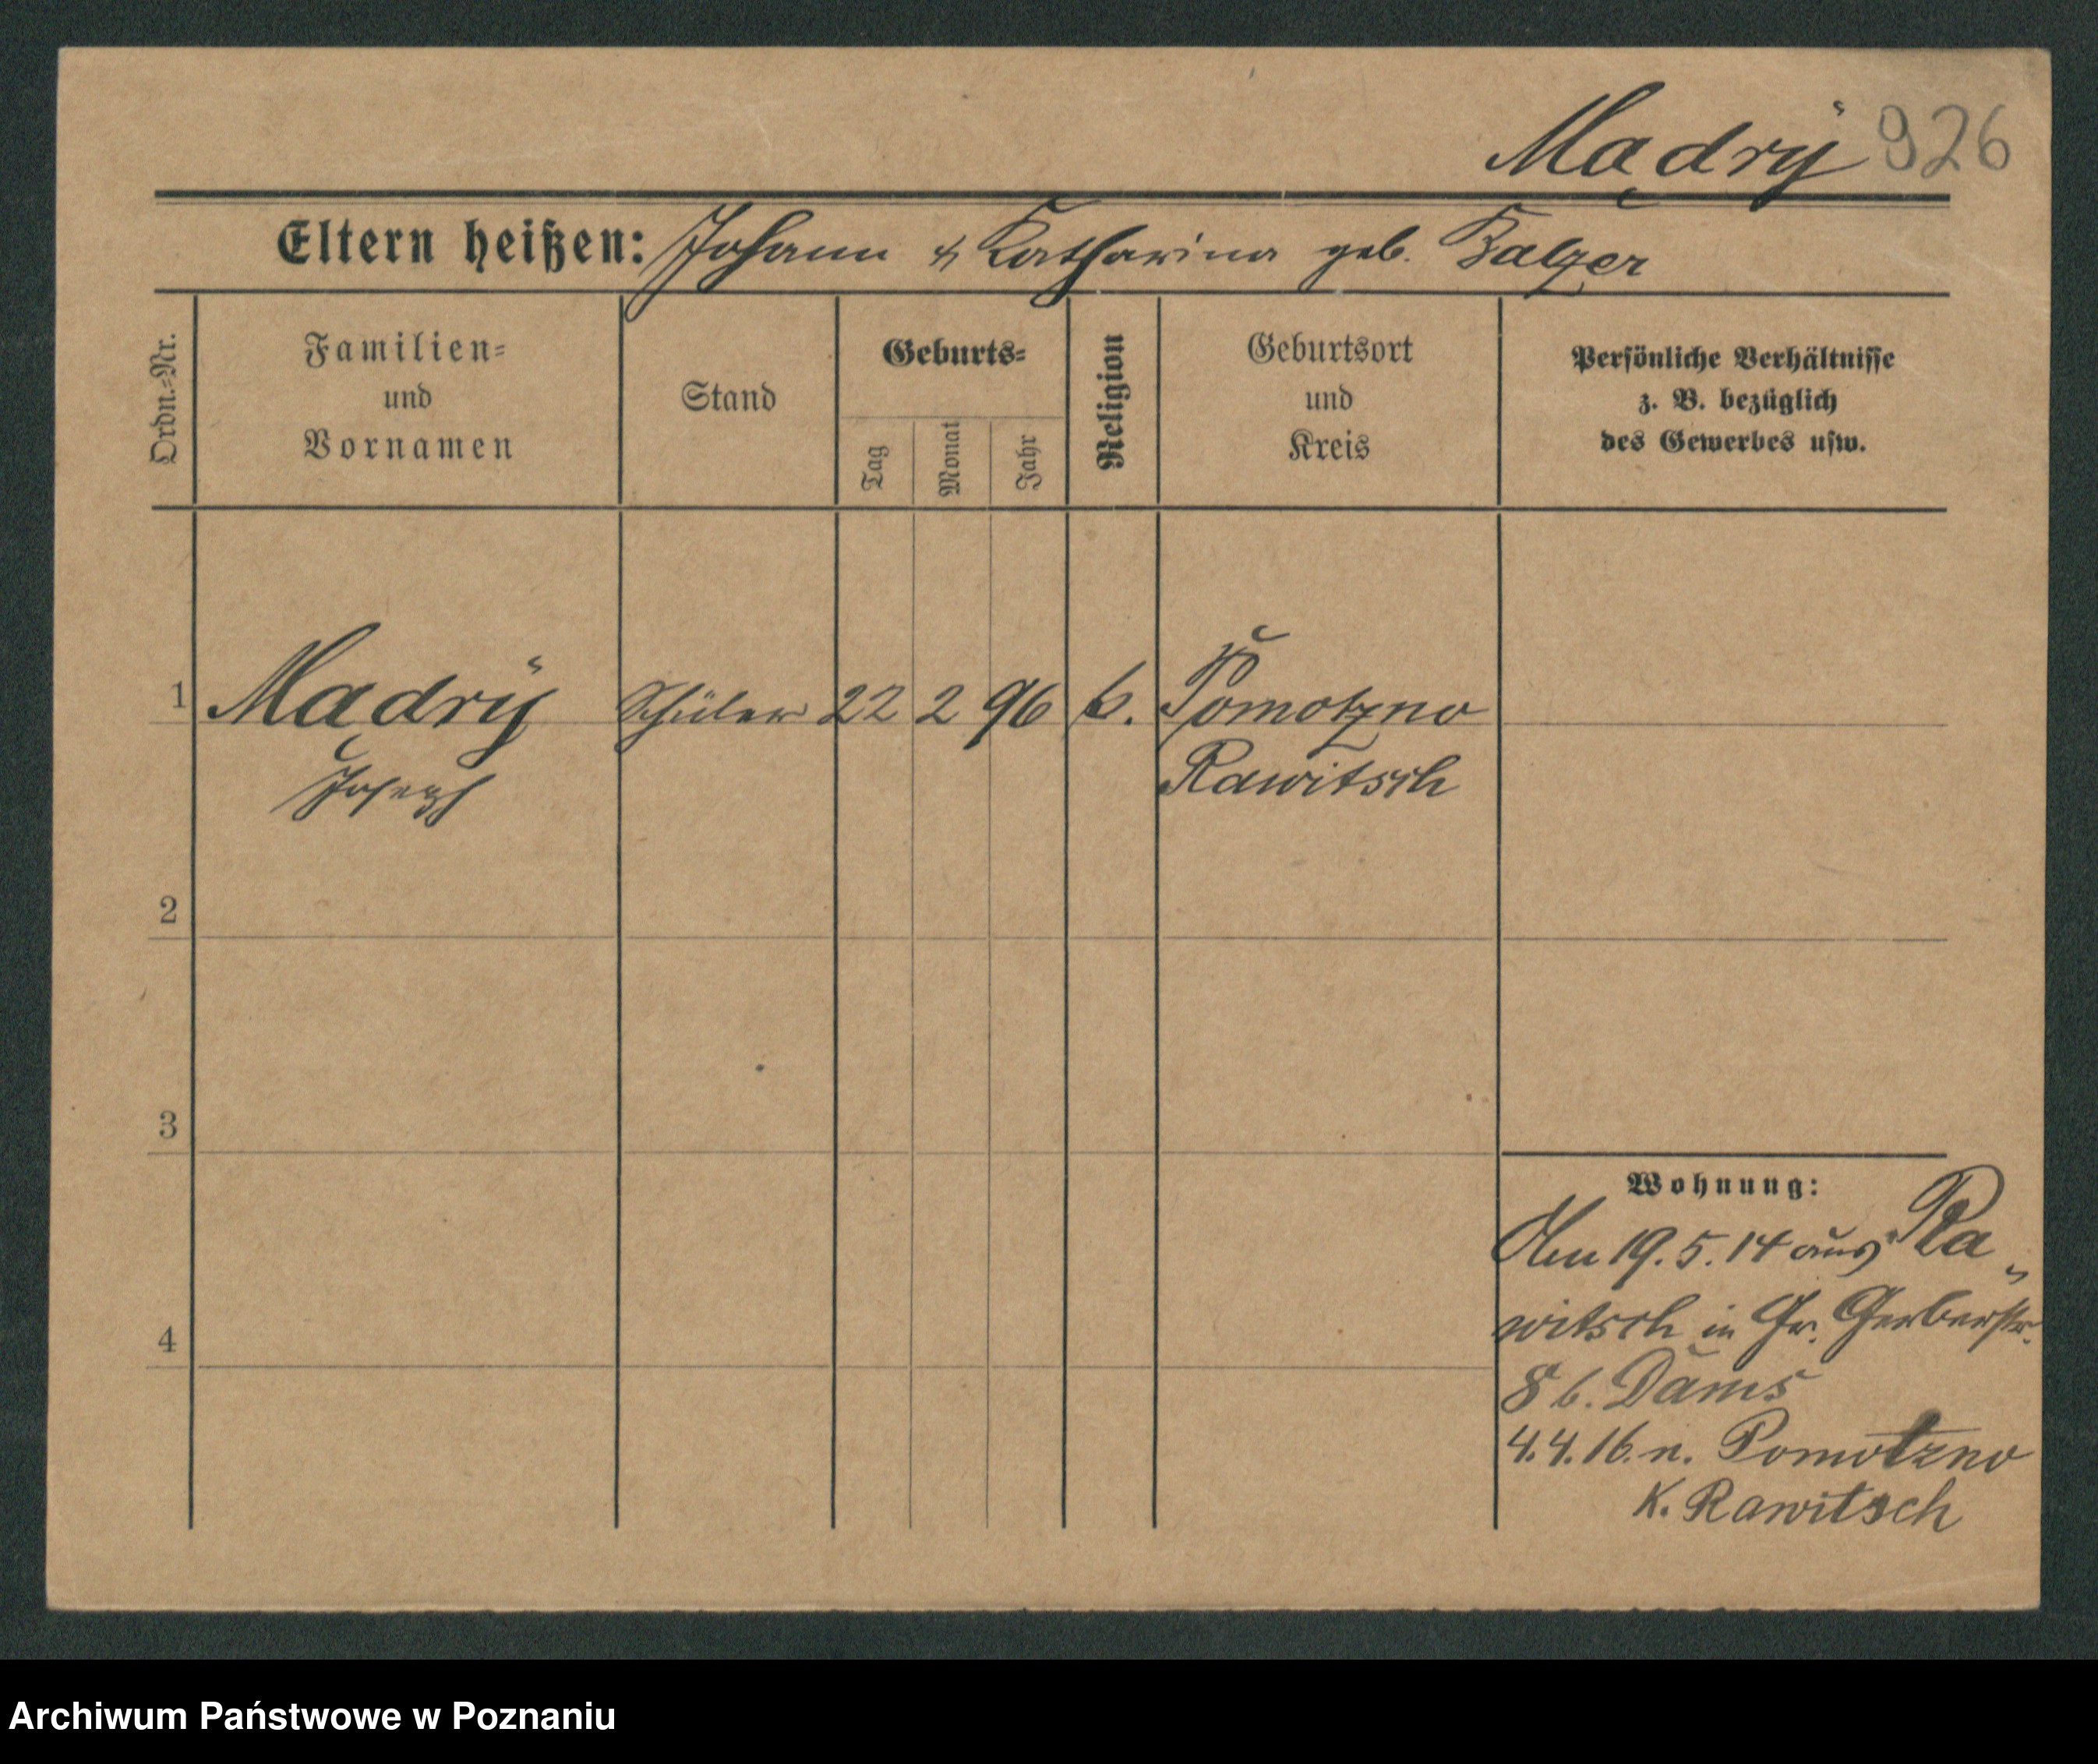 Mądrÿ 926
Eltern heißen: Johann & Katharina geb. Balzer
Ordn.-Nr.
Familien-
und
Vornamen
Stand
Geburts-
Tag
Monat
Jahr
Religion
Geburtsort
und
Kreis
Persönliche Verhältnisse
z. B. bezüglich
des Gewerbes usw.
1 Mądrÿ Schüler 22 2 96 k. Pomotzno
Joseph Rawitsch
2
3
4
Wohnung:
Am 19.5.14 aus Ra-
witsch in Gr. Gerberstr.
8 b. Dams
4.4.16. n. Pomotzno
K. Rawitsch
Archiwum Państwowe w Poznaniu